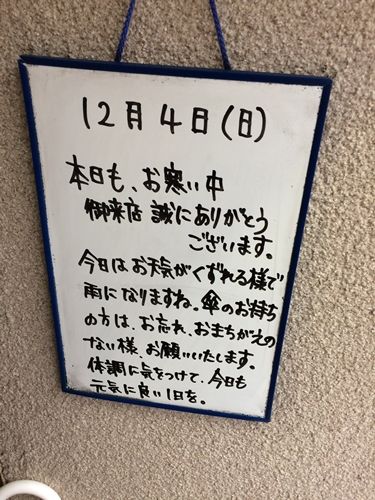 12月4日(日)
本日も、お寒い中
御来店 誠にありがとう
ございます。
今日はお天気がくずれる様で
雨になりますね。傘のお持ち
の方は、お忘れ、おまちがえの
ない様、お願いいたします。
体調に気をつけて、今日も
元気に良い1日を。